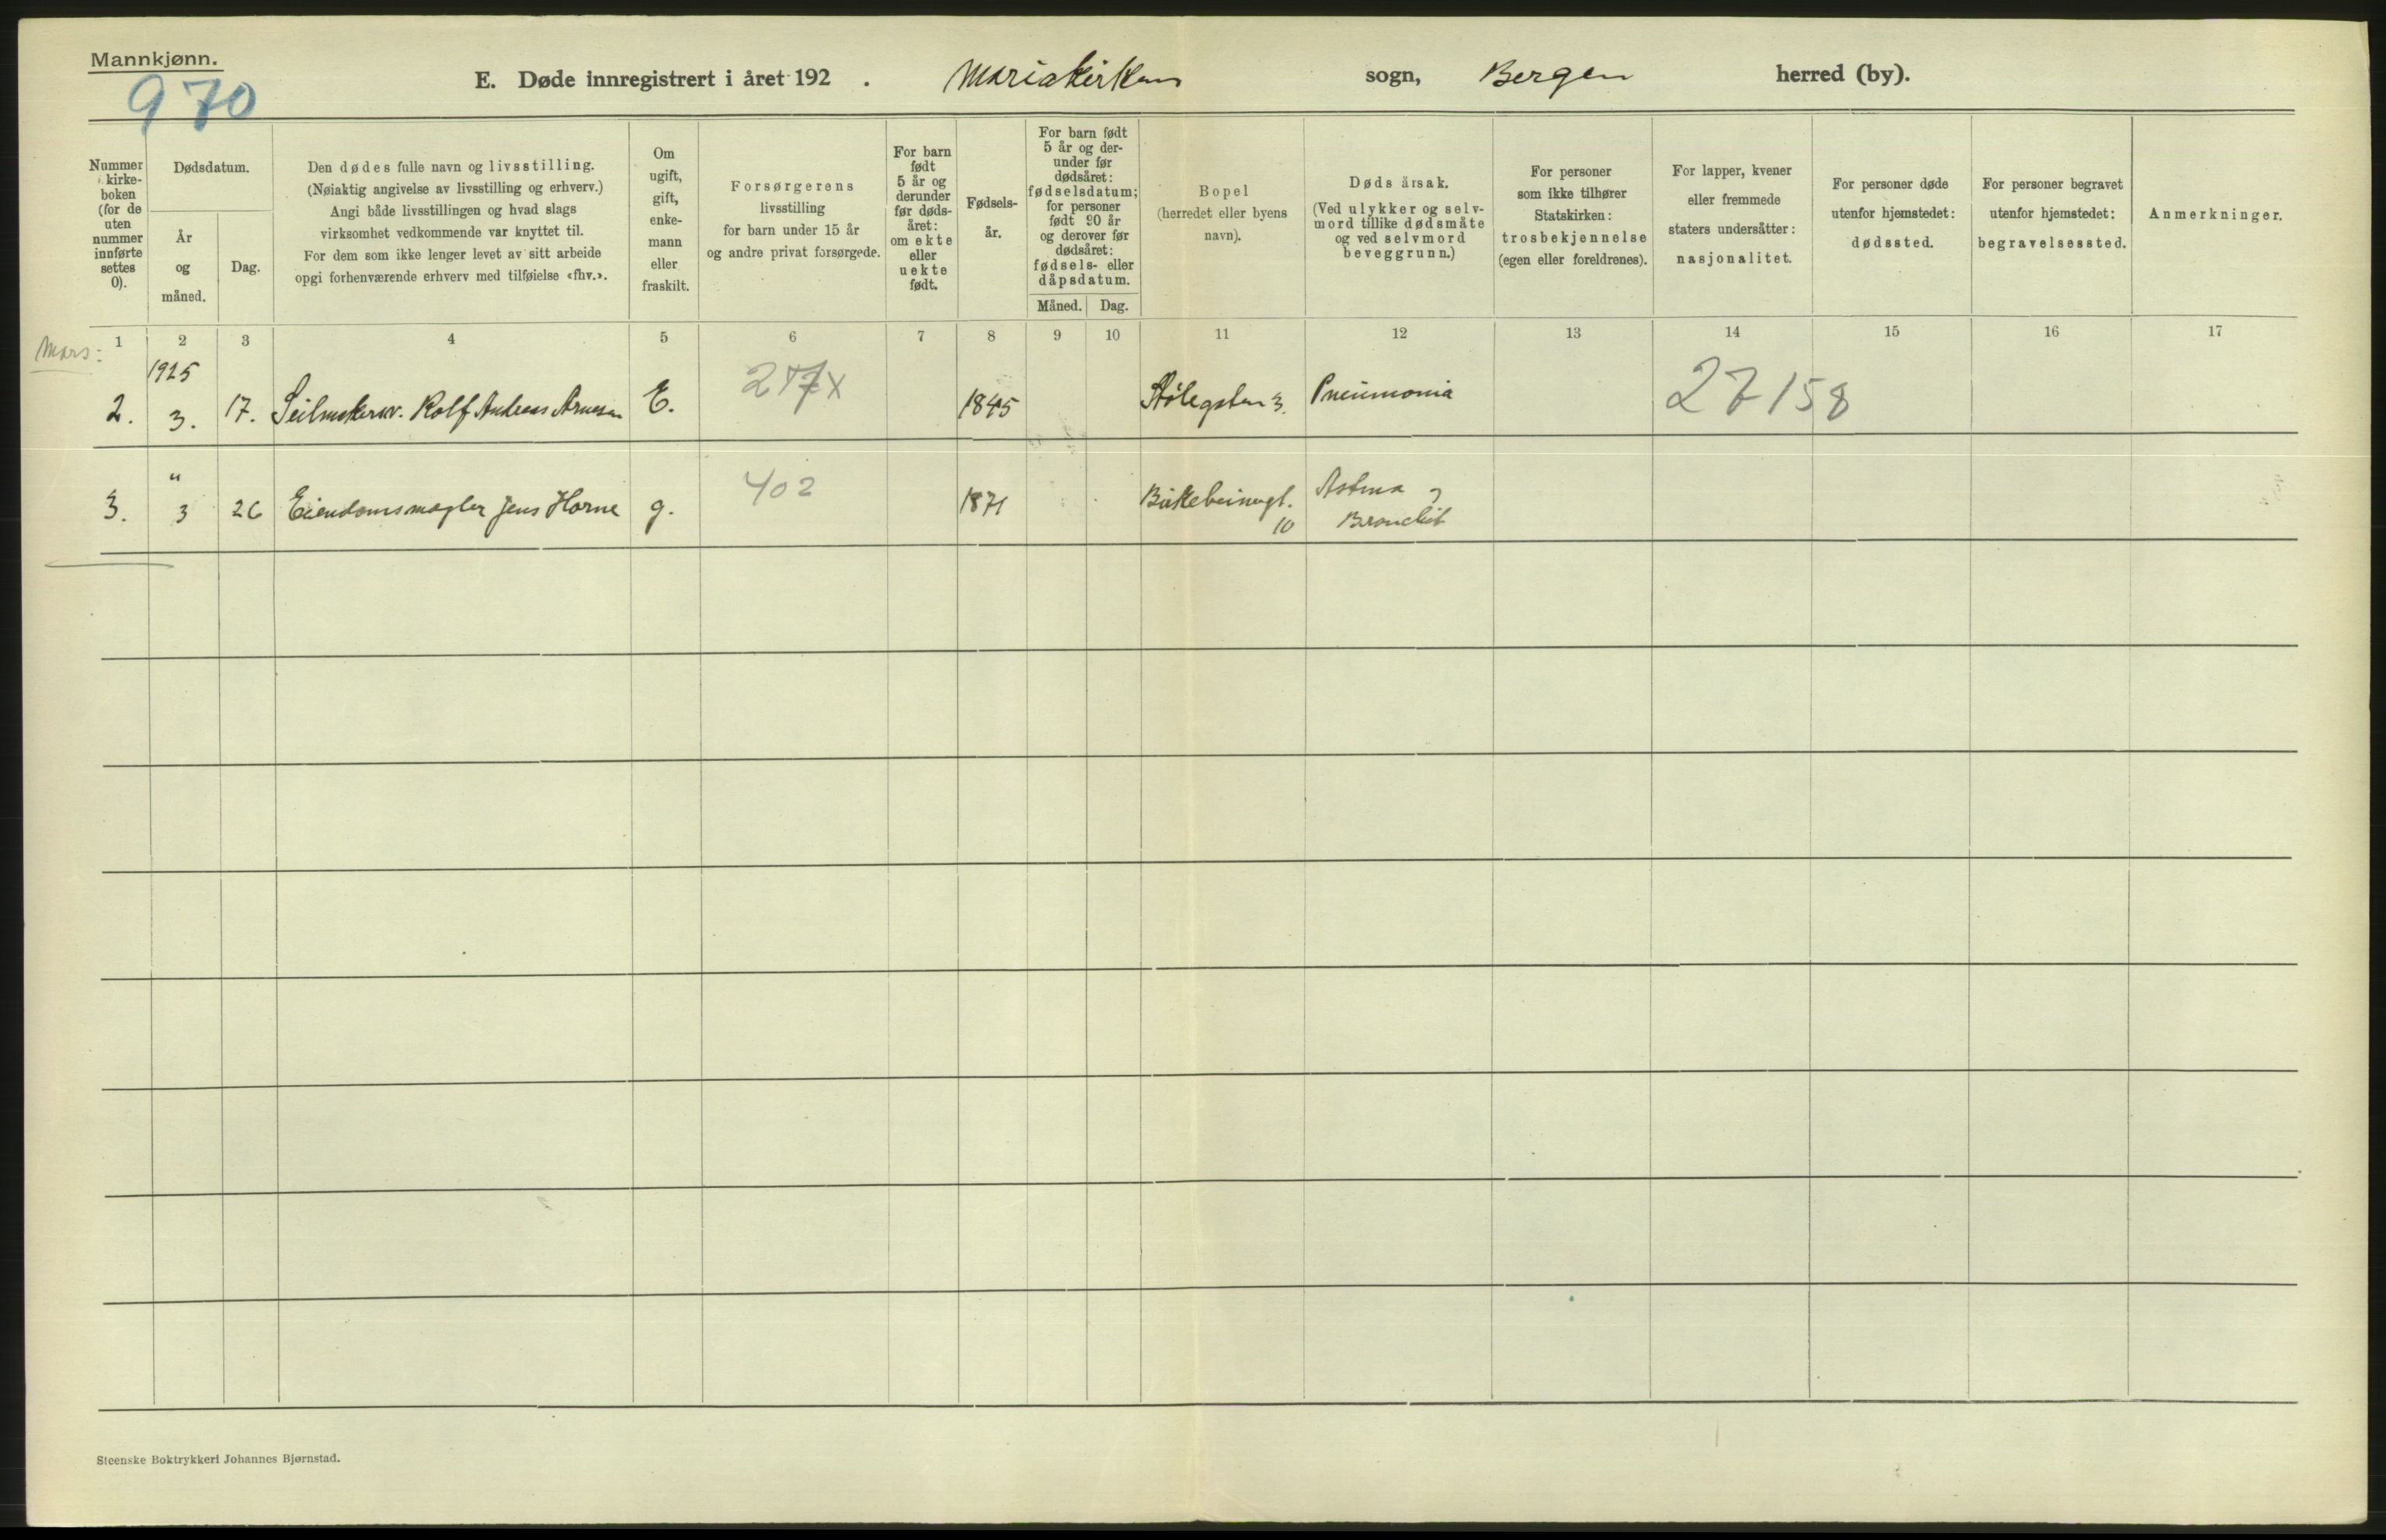 Mannkjønn.
970
E. Døde innregistrert i året 192 . Mariakirken sogn, Bergen herred (by).
Nummer i kirke-
boken
(for de
uten
nummer
innførte
settes
0).
Dødsdatum.
År
og
måned.
Dag.
Den dødes fulle navn og livsstilling.
(Nøiaktig angivelse av livsstilling og erhverv.)
Angi både livsstillingen og hvad slags
virksomhet vedkommende var knyttet til.
For dem som ikke lenger levet av sitt arbeide
opgi forhenværende erhverv med tilføielse «fhv.».
Om
ugift,
gift,
enke-
mann
eller
fraskilt.
Forsørgerens
livsstilling
for barn under 15 år
og andre privat forsørgede.
For barn
født
5 år og
derunder
før døds-
året:
om ekte
eller
uekte
født.
Fødsels-
år.
For barn født
5 år og der-
under før
dødsåret:
fødselsdatum;
for personer
født 90 år
og derover før
dødsåret:
fødsels- eller
dåpsdatum.
Måned. Dag.
Bopel
(herredet eller byens
navn).
Dødsårsak.
(Ved ulykker og selv-
mord tillike dødsmåte
og ved selvmord
beveggrunn.)
For personer
som ikke tilhører
Statskirken:
trosbekjennelse
(egen eller foreldrenes).
For lapper, kvener
eller fremmede
staters undersåtter:
nasjonalitet.
For personer døde
utenfor hjemstedet:
dødssted.
For personer begravet
utenfor hjemstedet:
begravelsessted.
Anmerkninger.
Mars:
1 2 3 4 5 6 7 8 9 10 11 12 13 14 15 16 17
1925
2. 3. 17. Rolf Andreas Arnesen E. 1845 3. Pneumonia 27158
"
3. 3 26 Eiendomsmægler Jens Horne g. 402 1871 Birkebeinergt. 10 Astma
Bronchit
Steenske Boktrykkeri Johannes Bjørnstad.